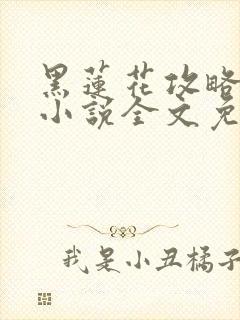 黑蓮花攻略
小說全文免
我是小丑橘子